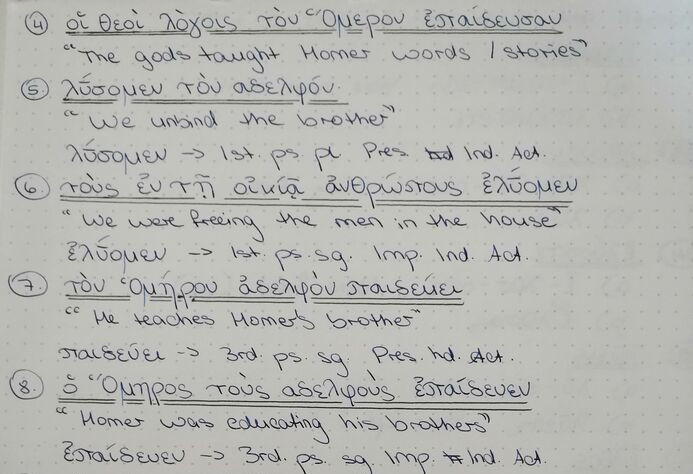 ④ οἱ θεοὶ λόγοις τὸν Ὅμερον ἐπαίδευσαν
"The gods taught Homer words / stories"
⑤. λύσομεν τὸν αδελφόν.
"We unbind the brother"
λύσομεν -> 1st. ps pl Pres. Ind. Act.
⑥. τοὺς ἐν τῇ οἰκίᾳ ἀνθρώπους ἐλύομεν
"We were freeing the men in the house"
ἐλύομεν -> 1st. ps. sg. Imp. Ind. Act.
⑦. τὸν Ὁμήρου ἀδελφὸν παιδεύει
"He teaches Homer's brother"
παιδεύει -> 3rd. ps. sg Pres. Ind. Act.
⑧. ὁ Ὅμηρος τοὺς αδελφοὺς ἐπαίδευεν
"Homer was educating his brothers"
ἐπαίδευεν -> 3rd. ps. sg Imp. Ind. Act.